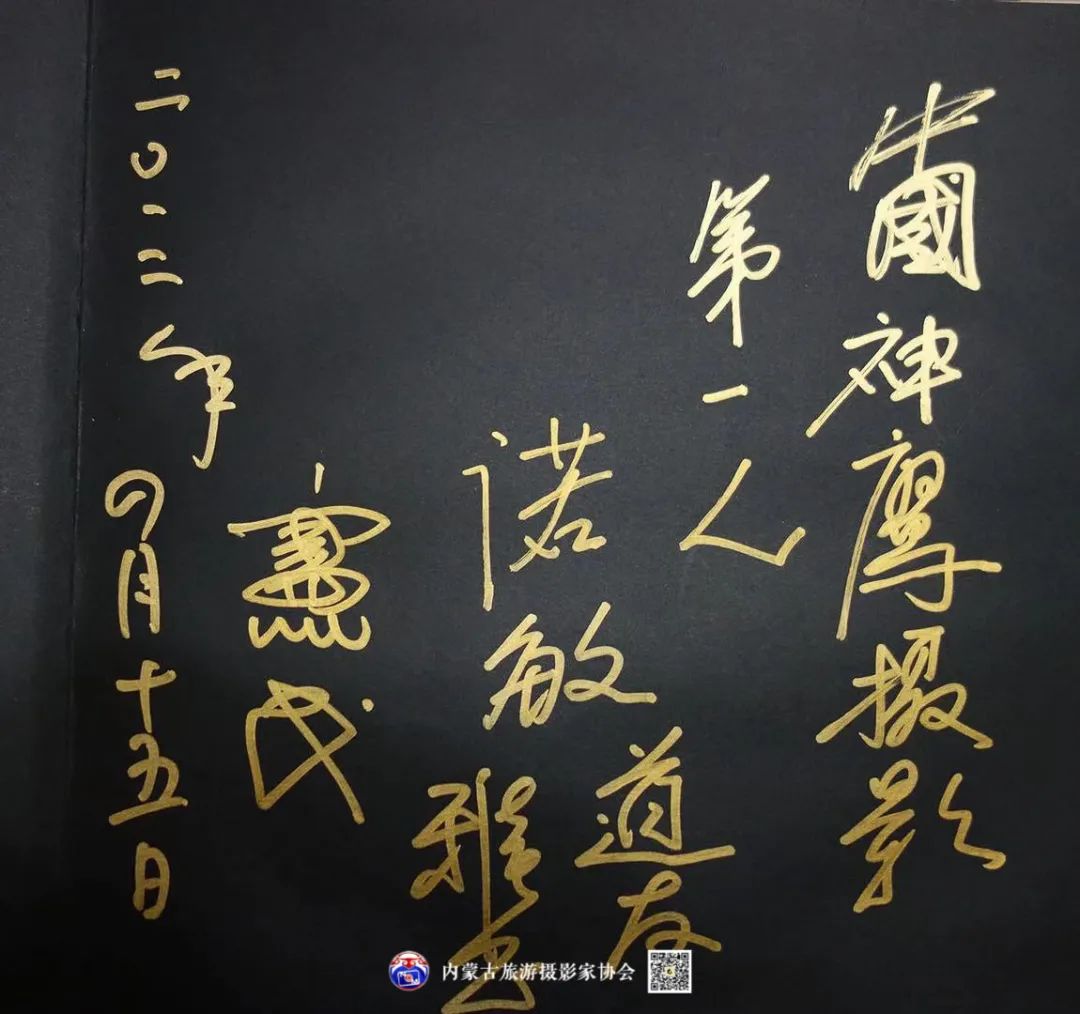 中國神摄影
第一人
诺敏
道友
雅
憲
二〇一二年四月十五日
内蒙古旅游摄影家协会